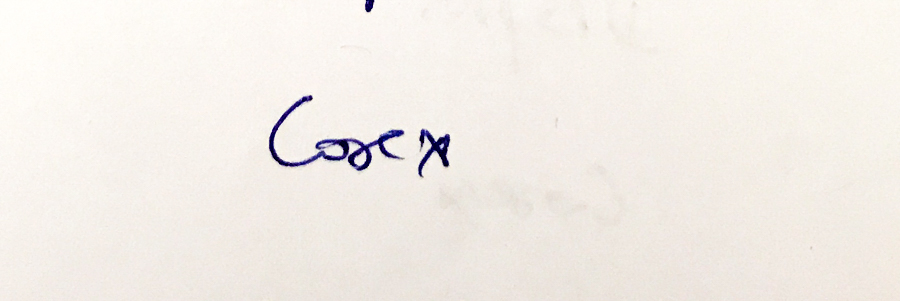 Cosec x